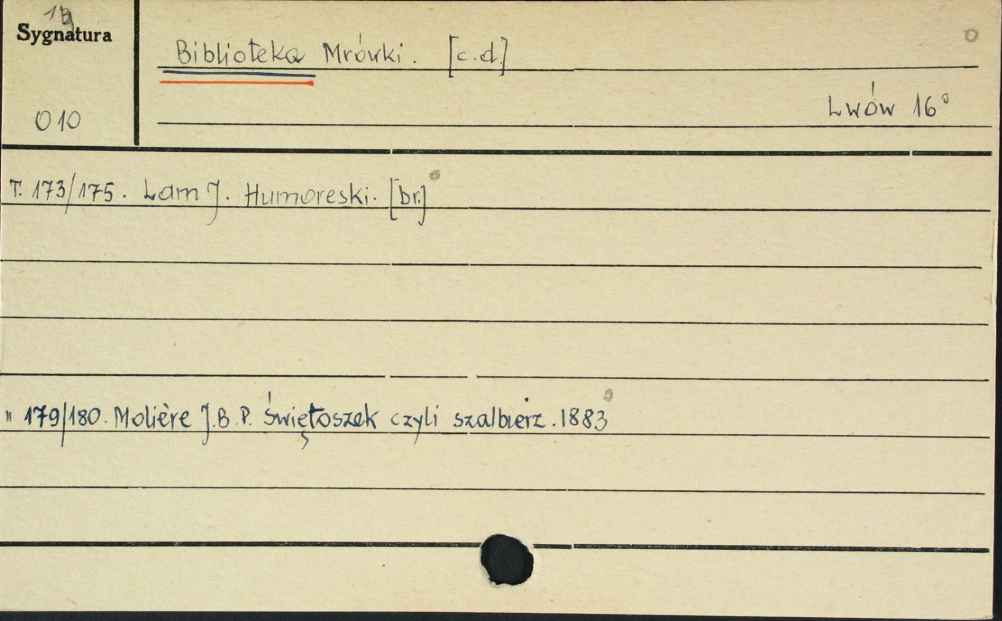 Sygnatura
Biblioteka Mrówki. [c.d.]
010
Lwów 16°
T. 173/175. Lam J. Humoreski. [br.]
" 179/180. Molière J.B.P. Świętoszek czyli szalbierz. 1883